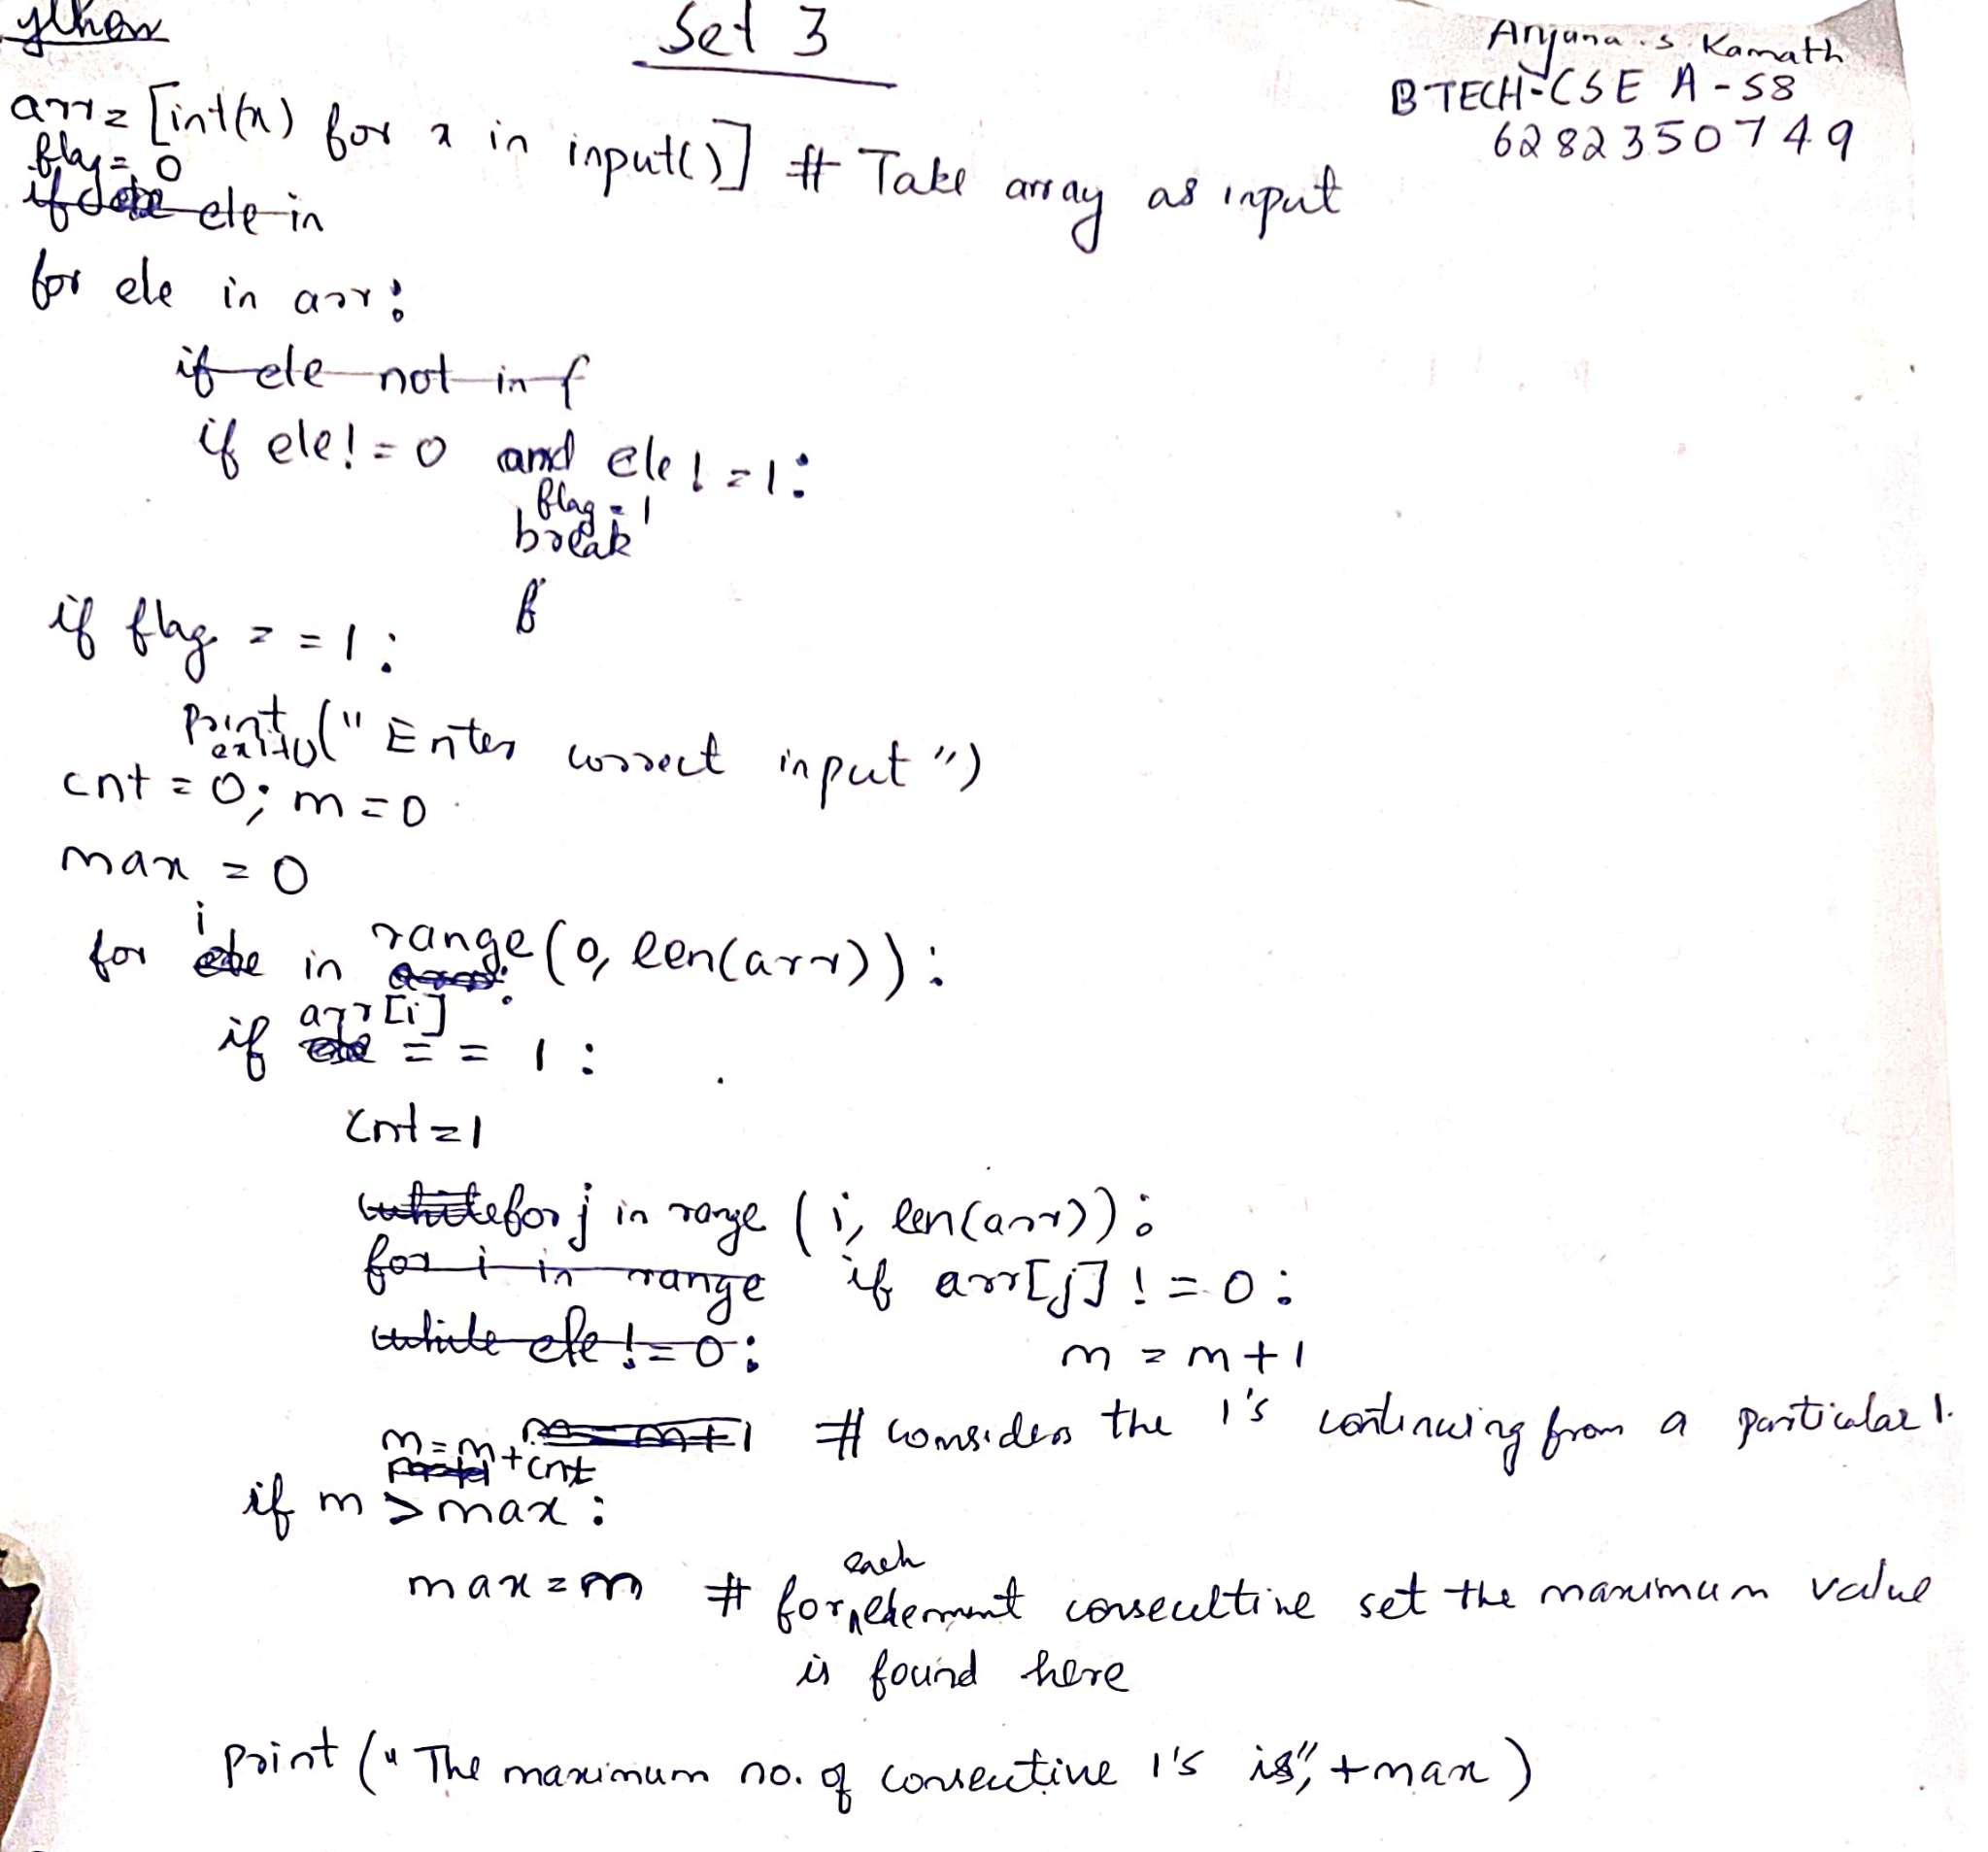 ython
Set 3
Anjana .s. Kamath
B TECH-CSE A - S8
6282350749
arr = [int(x) for x in input()] # Take array as input
flag = 0
if ele in
for ele in arr:
if ele not in f
if ele! = 0 and ele ! = 1:
flag = 1
break
f
if flag = = 1:
Print("Enter correct input")
exit()
cnt = 0; m = 0
max = 0
for i in range(0, len(arr)):
if arr[i] = = 1 :
cnt = 1
while for j in range (i, len(arr)):
for i in range if arr[j] ! = 0 :
while ele != 0: m = m + 1
m = m + cnt m = m+1 # considers the 1's continuing from a particular 1.
if m > max :
max = m # for each element consecultive set the maximum value
is found here
print ("The maximum no. of consecutive 1's is", + max )